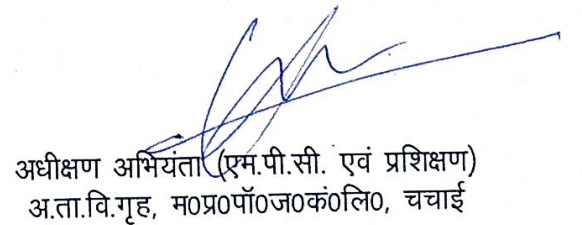 अधीक्षण अभियंता (एम.पी.सी. एवं प्रशिक्षण)
अ.ता.वि.गृह, म०प्र०पॉ०ज०कं०लि०, चचाई